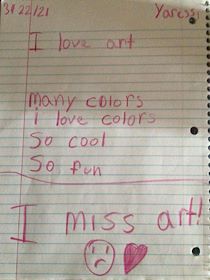 3/22/21 Yaressy
I love art
many colors
i love colors
So cool
So fun
I miss art!